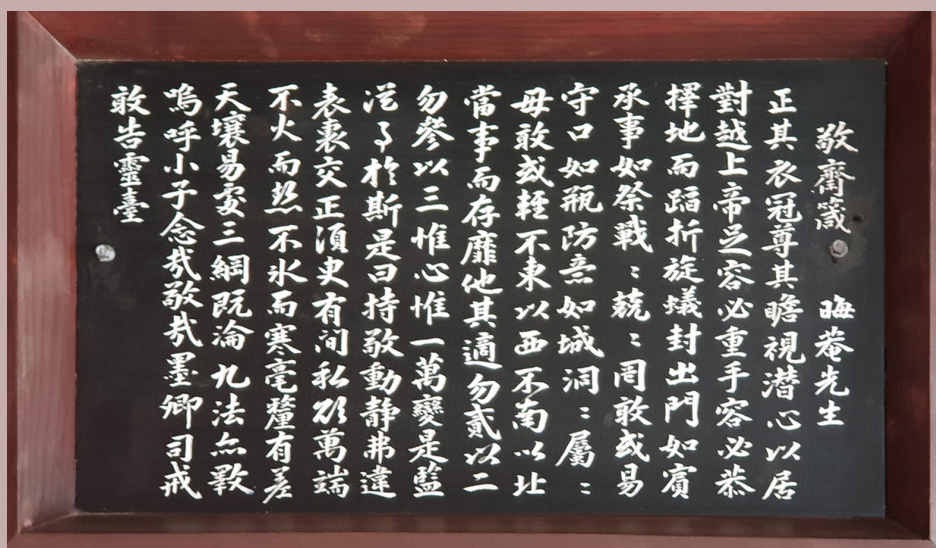 敬齋箴 晦菴先生
正其衣冠尊其瞻視潜心以居
對越上帝足容必重手容必恭
擇地而蹈折旋蟻封出門如賓
承事如祭戰〻兢〻罔敢或易
守口如瓶防意如城洞〻屬〻
毋敢或輕不東以西不南以北
當事而存靡他其適勿貳以二
勿參以三惟心惟一萬變是監
從事於斯是曰持敬動静弗違
表裏交正須臾有间私欲萬端
不火而热不氷而寒毫釐有差
天壤易處三綱既淪九法亦斁
嗚呼小子念哉敬哉墨卿司戒
敢告靈臺